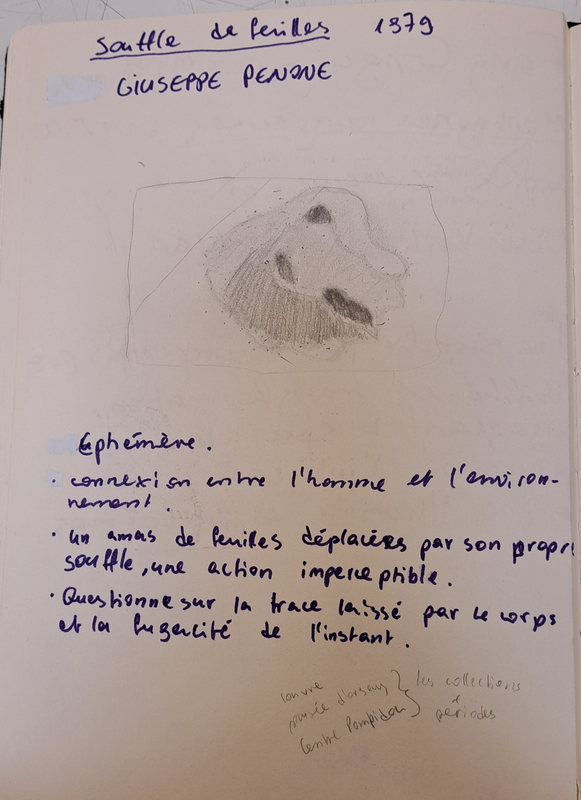 Souffle de feuilles 1979
GIUSEPPE PENONE
Ephémère.
• connexion entre l'homme et l'environ-
nement.
• un amas de feuilles déplacées par son propr
souffle, une action imperceptible.
• Questionne sur la trace laissé par le corps
et la fugacité de l'instant.
louvre
musée d'orsay } les collections
Centre Pompidou périodes